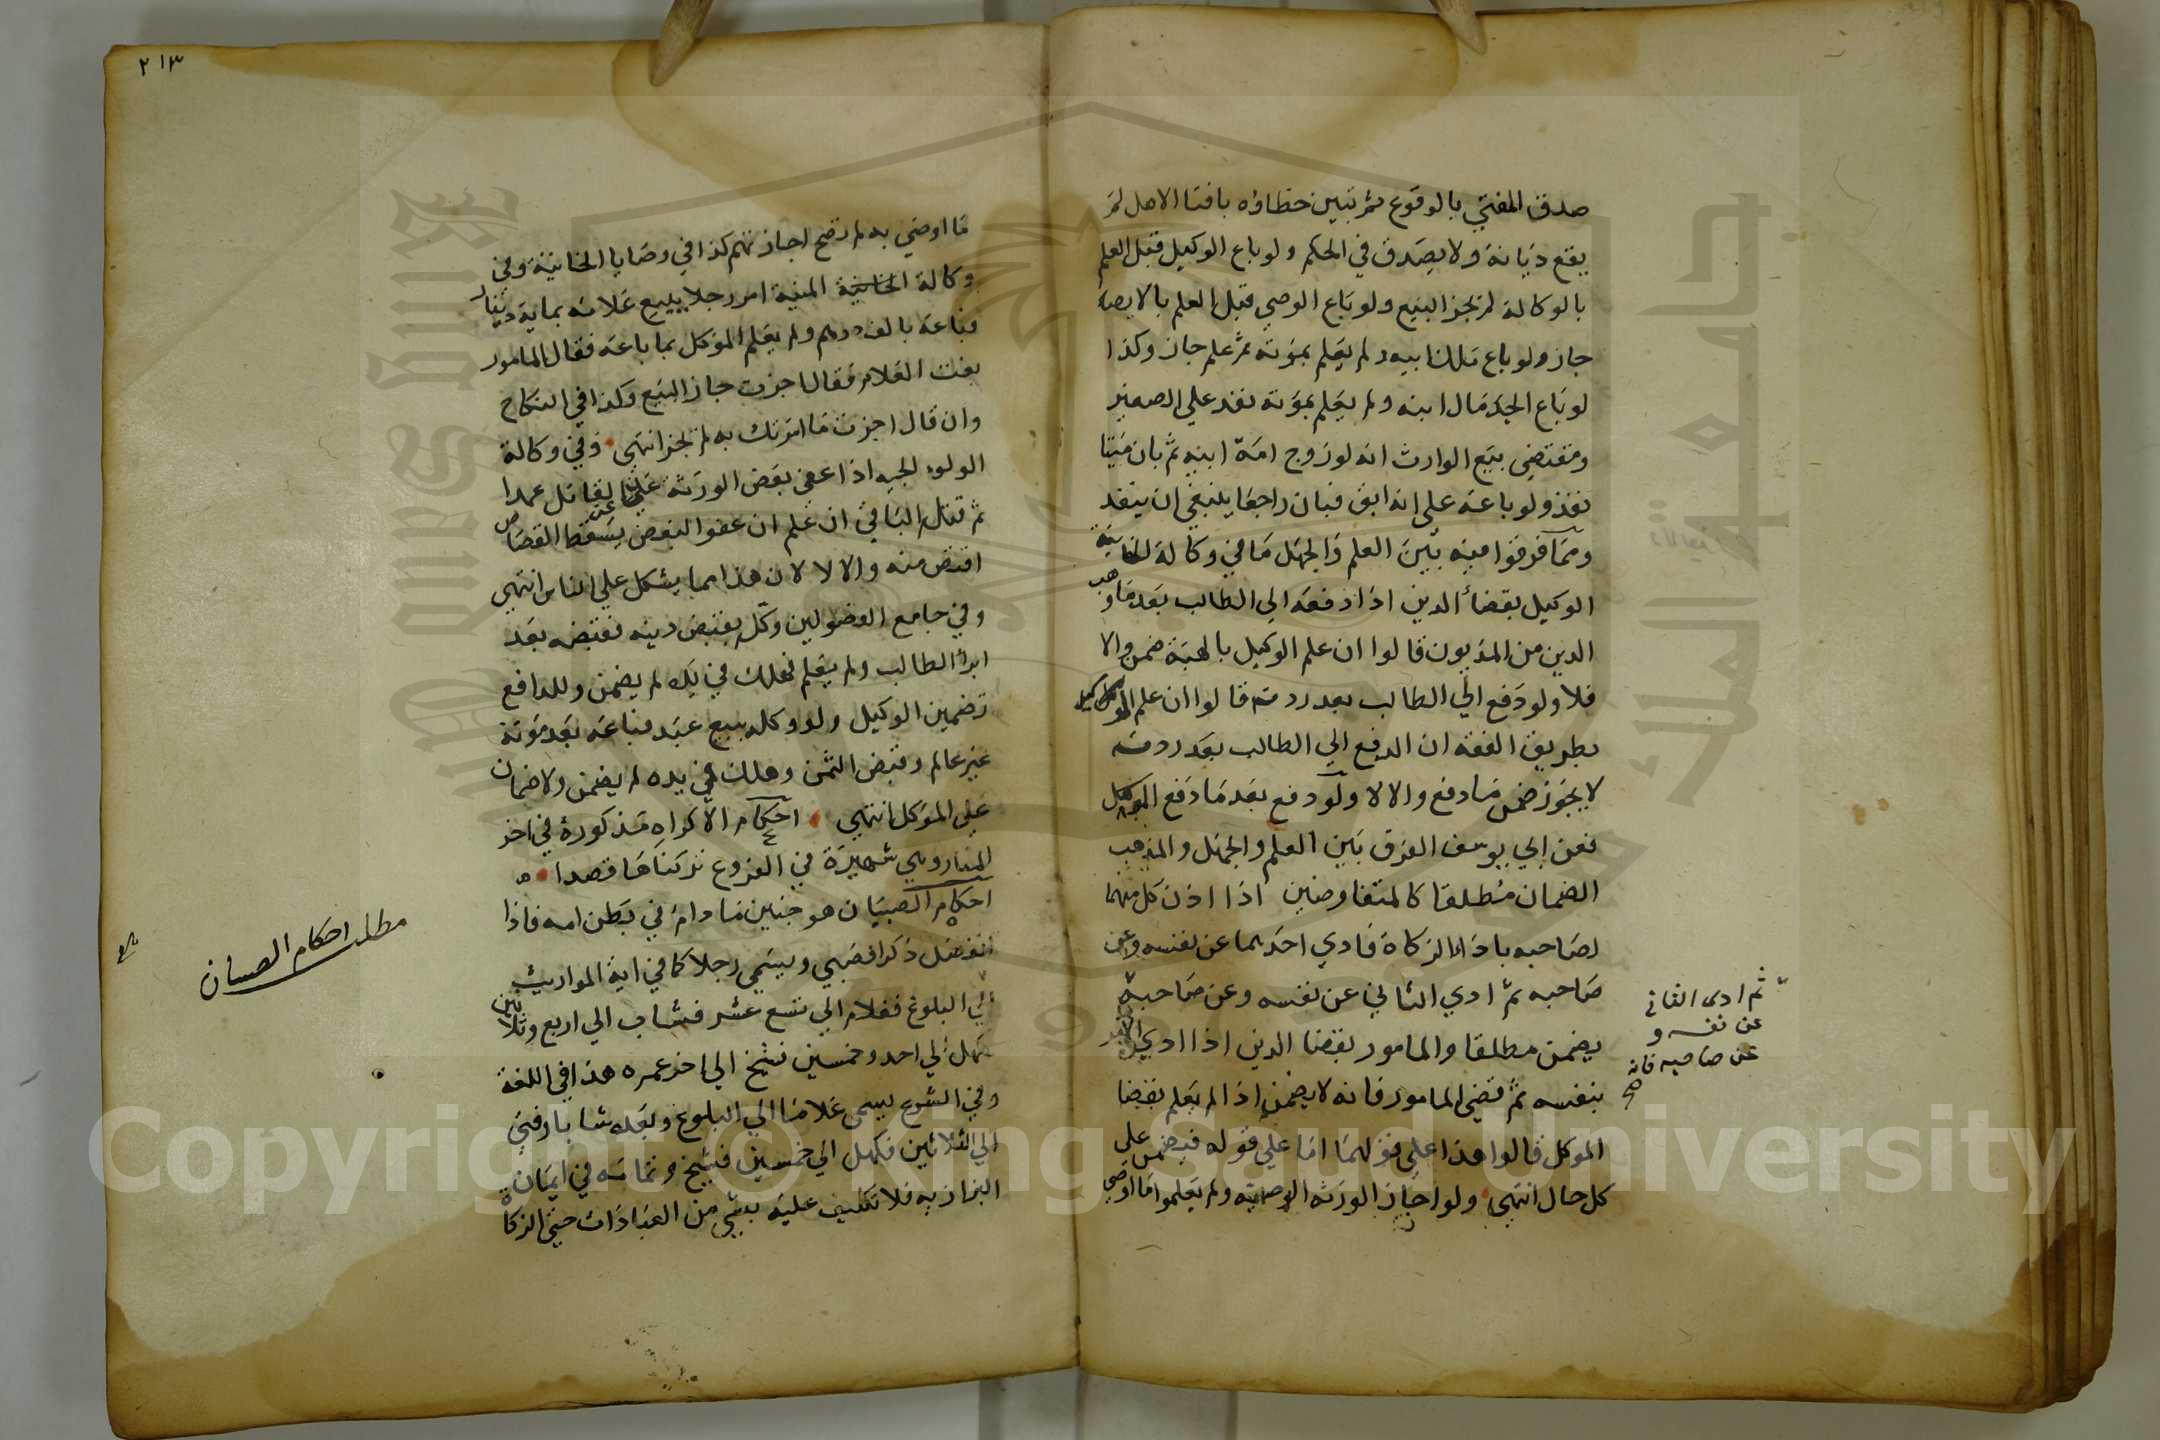 صدق المفتي بالوقوع ثم تبين خطاؤه بافتا الاهل لم
يقع ديانة ولا يصدق في الحكم ولو باع الوكيل قبل العلم
بالوكالة لم يجز البيع ولو باع الوصي قبل العلم بالايصا
جاز ولو باع ملك ابيه ولم يعلم بموته ثم علم جاز وكذا
لو باع الجد مال ابنه ولم يعلم بموته نفذ علي الصغير
ومقتضي بيع الوارث انه لو زوج امة ابيه ثم بان ميتا
نفذ ولو باعه علي انه ابق فبان راجعا ينبغي ان ينفذ
ومما فرقوا فيه بين العلم والجهل ما في وكالة الخانية
الوكيل بقضا الدين اذا دفعه الي الطالب بعد ما وهب
الدين من المديون قالوا ان علم الوكيل بالهبة ضمن والا
فلا ولو دفع الي الطالب بعد ردته قالوا ان علم الوكيل
بطريق الفقه ان الدفع الي الطالب بعد ردته
لا يجوز ضمن ما دفع والا لا ولو دفع بعد ما دفع الموكل
فعن ابي يوسف الفرق بين العلم والجهل والمذهب
الضمان مطلقا كالمتفاوضين اذا اذن كل منهما
لصاحبه باداء الزكاة فادي احدهما عن نفسه وعن
صاحبه ثم ادي الثاني عن نفسه وعن صاحبه
يضمن مطلقا والمامور بقضا الدين اذا ادي الامر
بنفسه ثم قضي المامور فانه لا يضمن اذا لم يعلم بقضا
الموكل قالوا هذا علي قولهما اما علي قوله فيضمن علي
كل حال انتهي ولو اجاز الورثة الوصية ولم يعلموا ما اوصي
ثم ادى الثاني
عن نفسه و
عن صاحبه فانه
صح
٢١٣
ما اوصي به لم تصح اجازتهم كذا في وصايا الخانية وفي
وكالة المنية امر رجلا ببيع غلامه بماية دينار
فباعه بالف درهم ولم يعلم الموكل بما باعه فقال المامور
بعت الغلام فقال اجزت جاز البيع وكذا في النكاح
وان قال اجزت ما امرتك به لم يجز انتهي وفي وكالة
الولوالجيه اذا عفي بعض الورثة عن القاتل عمدا
ثم قتله الباقي ان علم ان عفو البعض يسقط القصاص
اقتص منه والا لا لان هذا مما يشكل علي الناس انتهي
وفي جامع الفضولين وكله بقبض دينه فقبضه بعد
ابرا الطالب ولم يعلم فهلك في يده لم يضمن وللدافع
تضمين الوكيل ولو وكله ببيع عبد فباعه بعد موته
غير عالم وقبض الثمن وهلك في يده لم يضمن ولا ضمان
علي الموكل انتهي احكام الاكراه مذكورة في اخر
المنار وهي شهيرة في الفروع تركناها قصدا
احكام الصبيان هو جنين ما دام في بطن امه فاذا
انفصل ذكرا فصبي ويسمي رجلا كما في اية المواريث
الي البلوغ فغلام الي تسع عشر فشاب الي اربع وثلاثين
كهل الي احد وخمسين فشيخ الي اخر عمره هذا في اللغة
وفي الشرع يسمى غلاما الي البلوغ وبعده شابا وفتي
الي الثلاثين فكهل الي خمسين فشيخ وتمامه في ايمان
البزازيه فلا تكليف عليه بشي من العبادات حتي الزكاة
مطلب احكام الصبيان